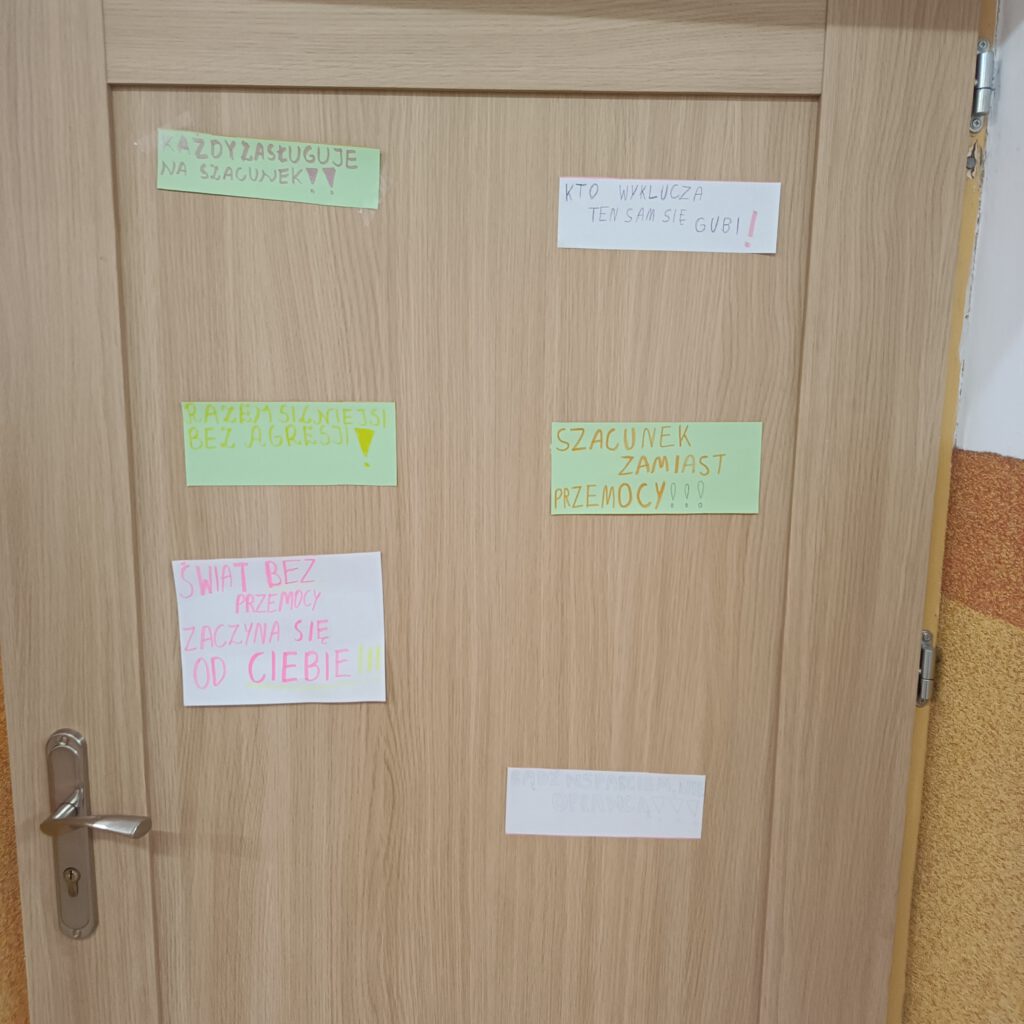 KAŻDY ZASŁUGUJE
NA SZACUNEK!!
KTO WYKLUCZA
TEN SAM SIĘ
GUBI!
RAZEM SILNIEJSI
BEZ AGRESJI!
SZACUNEK
ZAMIAST
PRZEMOCY!!!
ŚWIAT BEZ
PRZEMOCY
ZACZYNA SIĘ
OD CIEBIE!!!
BĄDŹ WSPARCIEM, NIE
OPRAWCĄ!!!